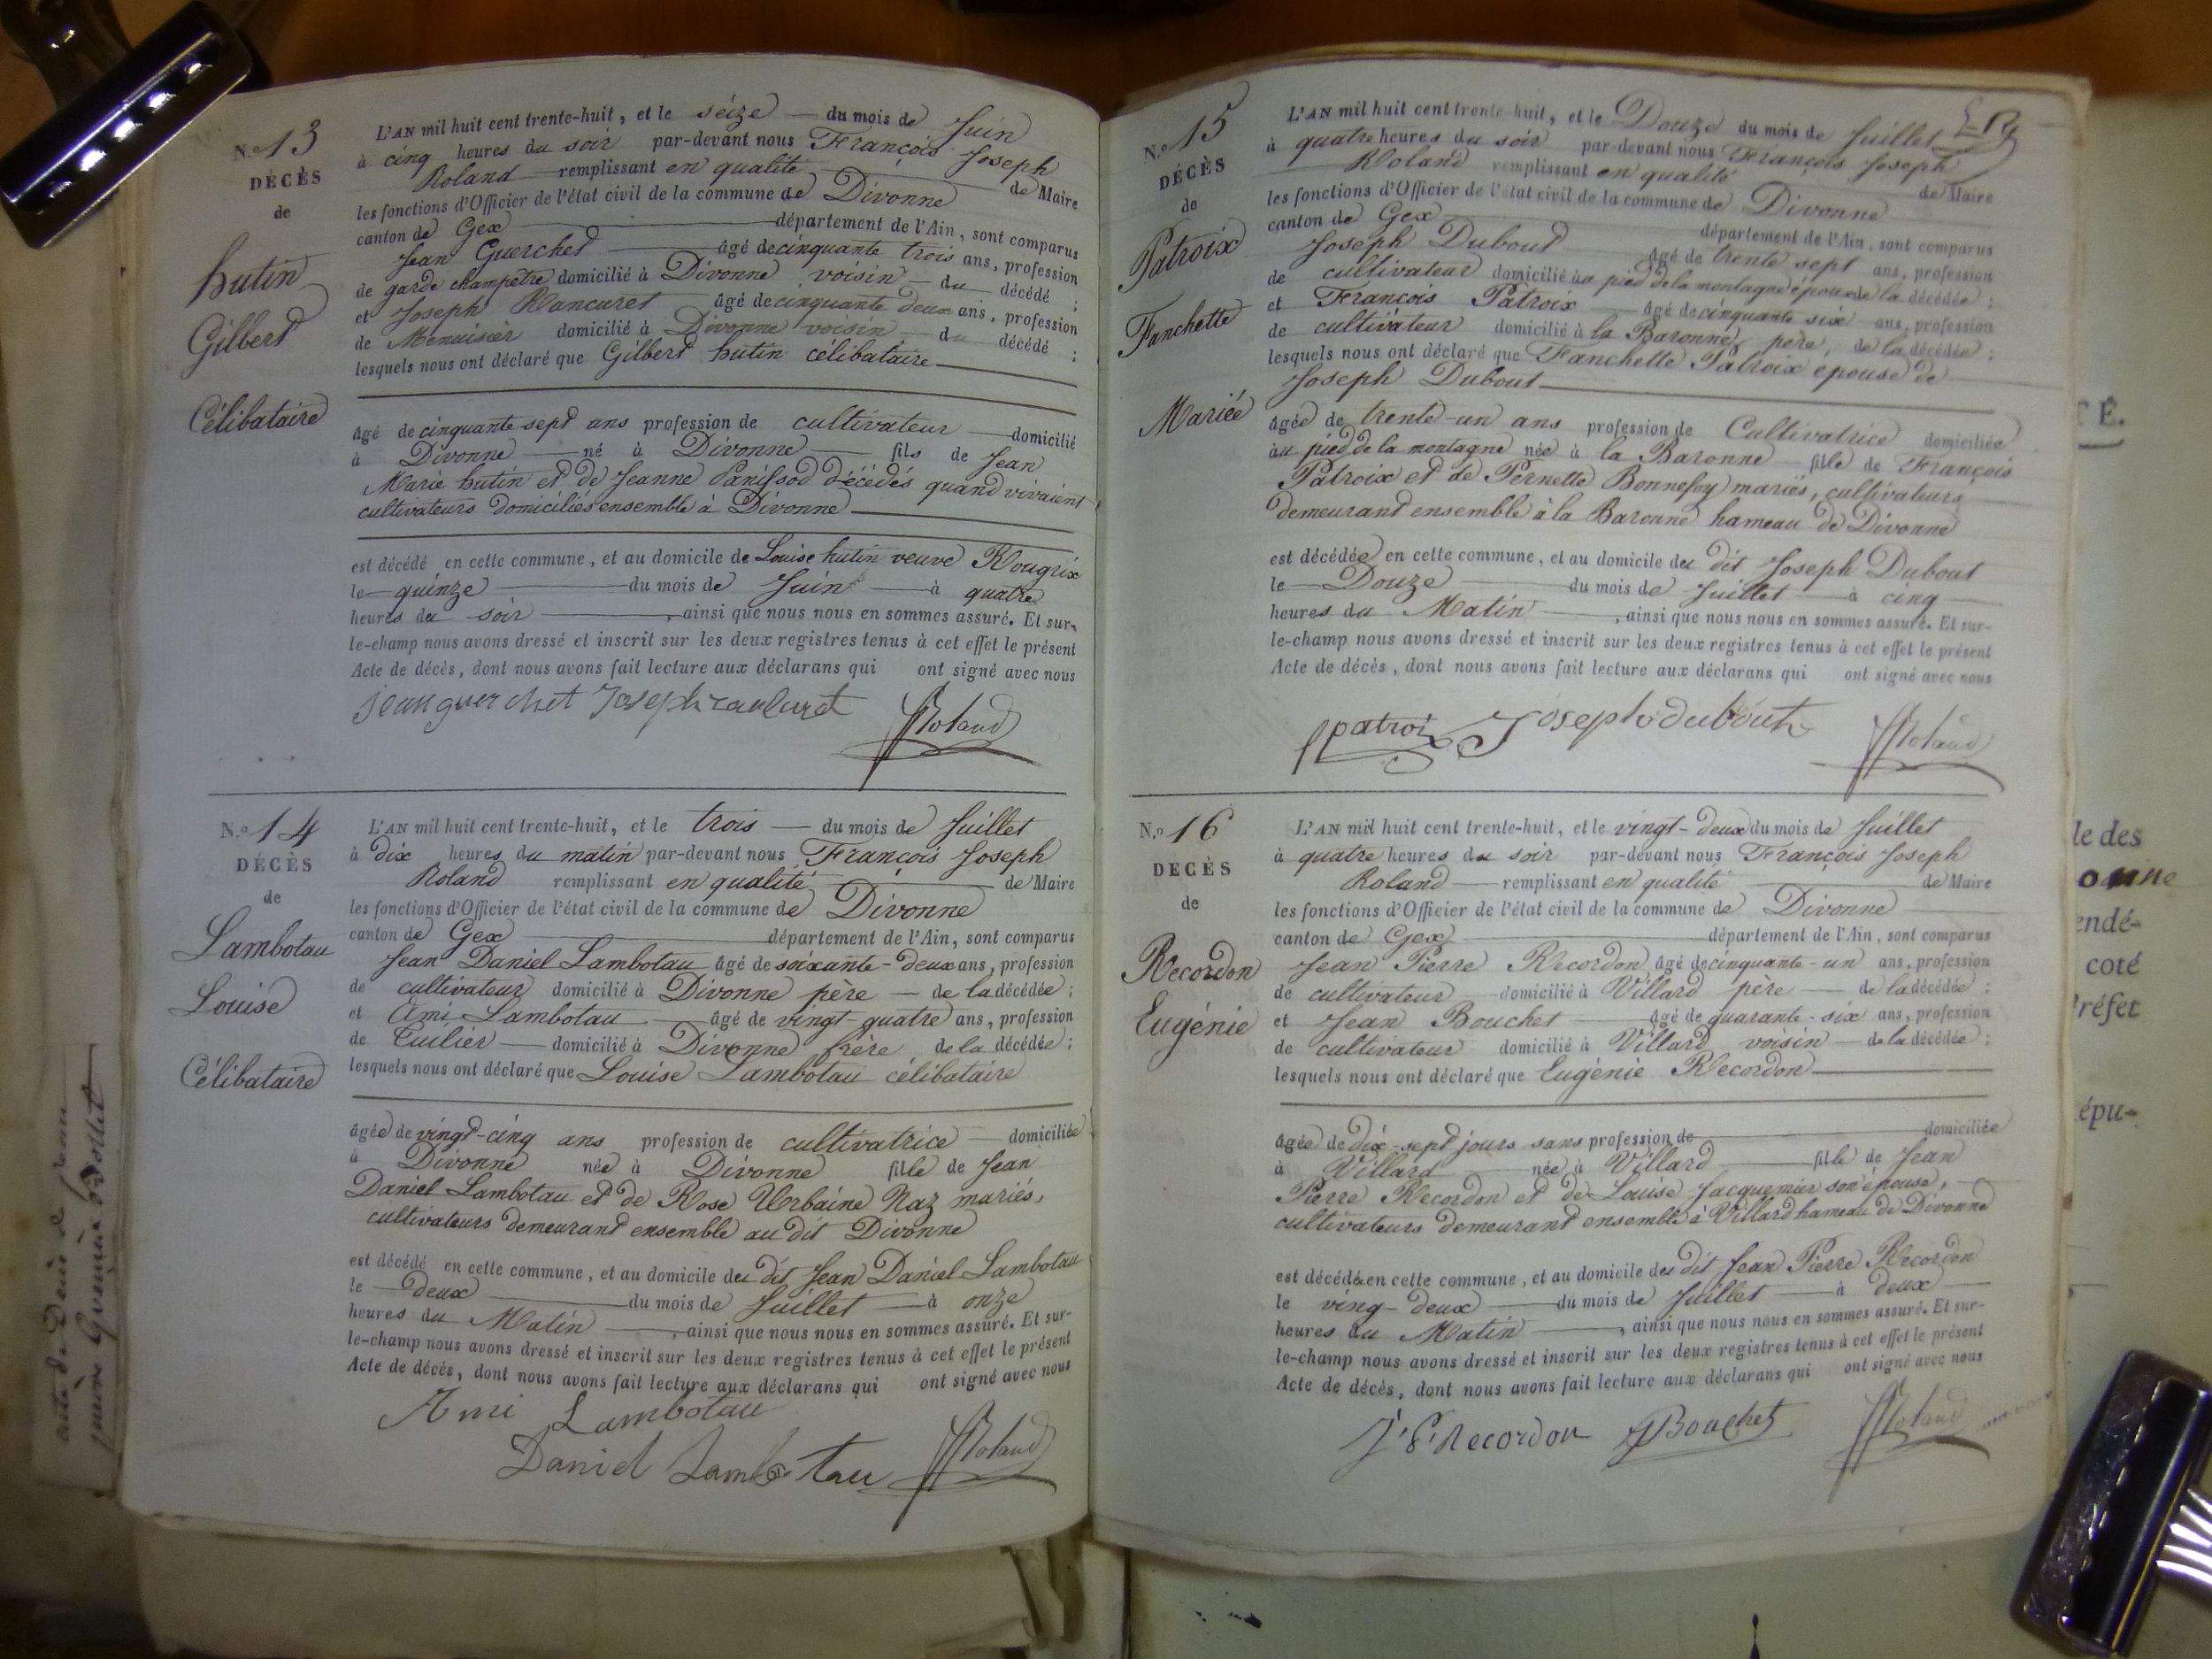 N.o 13
DÉCÈS
de
hutin
Gilbert
Célibataire
L'AN mil huit cent trente-huit, et le seize du mois de Juin
à cinq heures du soir par-devant nous François Joseph
Roland remplissant en qualité de Maire
les fonctions d'Officier de l'état civil de la commune de Divonne
canton de Gex département de l'Ain, sont comparus
Jean Guerchet âgé de cinquante trois ans, profession
de garde champêtre domicilié à Divonne voisin du décédé ;
et Joseph Rancuret âgé de cinquante deux ans, profession
de Menuisier domicilié à Divonne voisin du décédé ;
lesquels nous ont déclaré que Gilbert hutin célibataire
âgé de cinquante sept ans profession de cultivateur domicilié
à Divonne né à Divonne fils de Jean
Marie hutin et de Jeanne Panissod décédés quand vivaient
cultivateurs domiciliés ensemble à Divonne
est décédé en cette commune, et au domicile de Louise hutin veuve Rougrix
le quinze du mois de Juin à quatre
heures du soir, ainsi que nous nous en sommes assuré. Et sur-
le-champ nous avons dressé et inscrit sur les deux registres tenus à cet effet le présent
Acte de décès, dont nous avons fait lecture aux déclarans qui ont signé avec nous
jean guerchet Joseph rancuret Roland
N.o 14
DÉCÈS
de
Lambotau
Louise
Célibataire
L'AN mil huit cent trente-huit, et le trois du mois de Juillet
à dix heures du matin par-devant nous François Joseph
Roland remplissant en qualité de Maire
les fonctions d'Officier de l'état civil de la commune de Divonne
canton de Gex département de l'Ain, sont comparus
Jean Daniel Lambotau âgé de soixante-deux ans, profession
de cultivateur domicilié à Divonne père de la décédée ;
et Ami Lambotau âgé de vingt-quatre ans, profession
de Tuilier domicilié à Divonne frère de la décédée ;
lesquels nous ont déclaré que Louise Lambotau célibataire
âgée de vingt-cinq ans profession de cultivatrice domiciliée
à Divonne née à Divonne fille de Jean
Daniel Lambotau et de Rose Urbaine Naz mariés,
cultivateurs demeurant ensemble au dit Divonne
est décédé en cette commune, et au domicile du dit Jean Daniel Lambotau
le deux du mois de Juillet à onze
heures du Matin, ainsi que nous nous en sommes assuré. Et sur-
le-champ nous avons dressé et inscrit sur les deux registres tenus à cet effet le présent
Acte de décès, dont nous avons fait lecture aux déclarans qui ont signé avec nous
Ami Lambotau
Daniel Lambotau Roland
N.o 15
DÉCÈS
de
Patroix
Fanchette
Mariée
L'AN mil huit cent trente-huit, et le Douze du mois de Juillet
à quatre heures du soir par-devant nous François Joseph
Roland remplissant en qualité de Maire
les fonctions d'Officier de l'état civil de la commune de Divonne
canton de Gex département de l'Ain, sont comparus
Joseph Dubout âgé de trente sept ans, profession
de cultivateur domicilié au pied de la montagne époux de la décédée ;
et François Patroix âgé de cinquante six ans, profession
de cultivateur domicilié à la Baronne père, de la décédée ;
lesquels nous ont déclaré que Fanchette Patroix épouse de
Joseph Dubout
âgée de trente-un ans profession de Cultivatrice domiciliée
au pied de la montagne née à la Baronne fille de François
Patroix et de Pernette Bonnefoy mariés, cultivateurs
demeurant ensemble à la Baronne hameau de Divonne
est décédée en cette commune, et au domicile du dit Joseph Dubout
le Douze du mois de Juillet à cinq
heures du Matin, ainsi que nous nous en sommes assuré. Et sur-
le-champ nous avons dressé et inscrit sur les deux registres tenus à cet effet le présent
Acte de décès, dont nous avons fait lecture aux déclarans qui ont signé avec nous
patroix Joseph dubout Roland
N.o 16
DÉCÈS
de
Recordon
Eugénie
L'AN mil huit cent trente-huit, et le vingt-deux du mois de Juillet
à quatre heures du soir par-devant nous François Joseph
Roland remplissant en qualité de Maire
les fonctions d'Officier de l'état civil de la commune de Divonne
canton de Gex département de l'Ain, sont comparus
Jean Pierre Recordon âgé de cinquante-un ans, profession
de cultivateur domicilié à Villard père de la décédée ;
et Jean Bouchet âgé de quarante-six ans, profession
de cultivateur domicilié à Villard voisin de la décédée ;
lesquels nous ont déclaré que Eugénie Recordon
âgée de dix-sept jours sans profession de domiciliée
à Villard née à Villard fille de Jean
Pierre Recordon et de Louise Jacquemier son épouse,
cultivateurs demeurant ensemble à Villard hameau de Divonne
est décédée en cette commune, et au domicile du dit Jean Pierre Recordon
le ving-deux du mois de Juillet à deux
heures du Matin, ainsi que nous nous en sommes assuré. Et sur-
le-champ nous avons dressé et inscrit sur les deux registres tenus à cet effet le présent
Acte de décès, dont nous avons fait lecture aux déclarans qui ont signé avec nous
J. P. Recordon Bouchet Roland
le des
onne
endé-
coté
Préfet
épu-